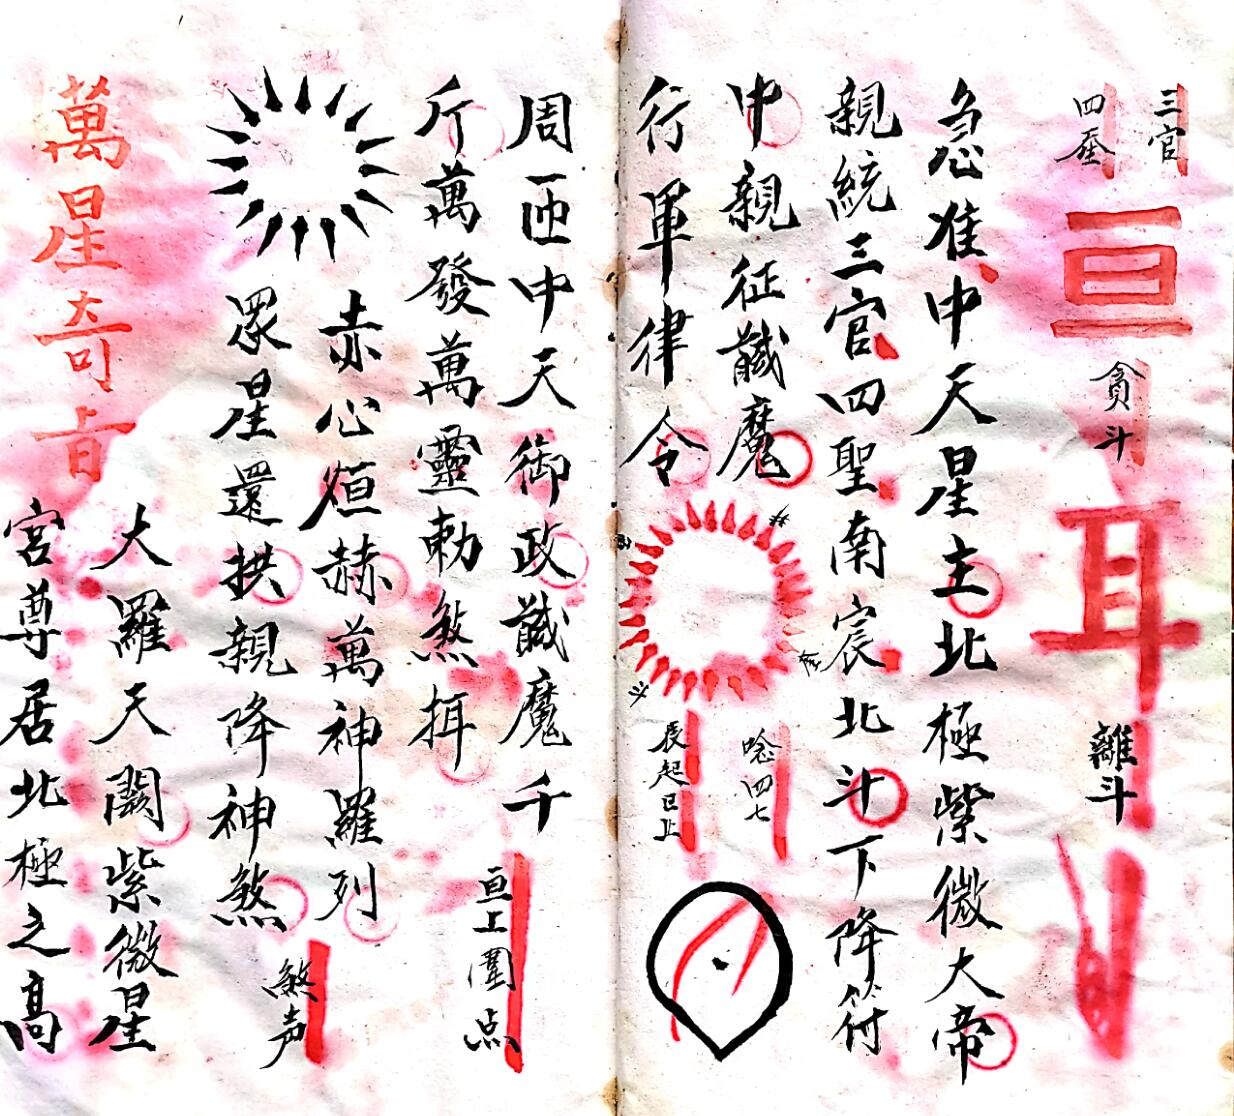 三官
四聖
亘
貪斗
耳
離斗
急准中天星主北極紫微大帝
親統三官四聖南宸北斗下降符
中親征馘魔
行軍律令
唸四七
長起已止
周匝中天御政馘魔千
斤萬發萬靈勅煞揖
亘上圍点
赤心烜赫萬神羅列
眾星還拱親降神煞
煞声
萬星奇
大羅天闕紫微星
宮尊居北極之高